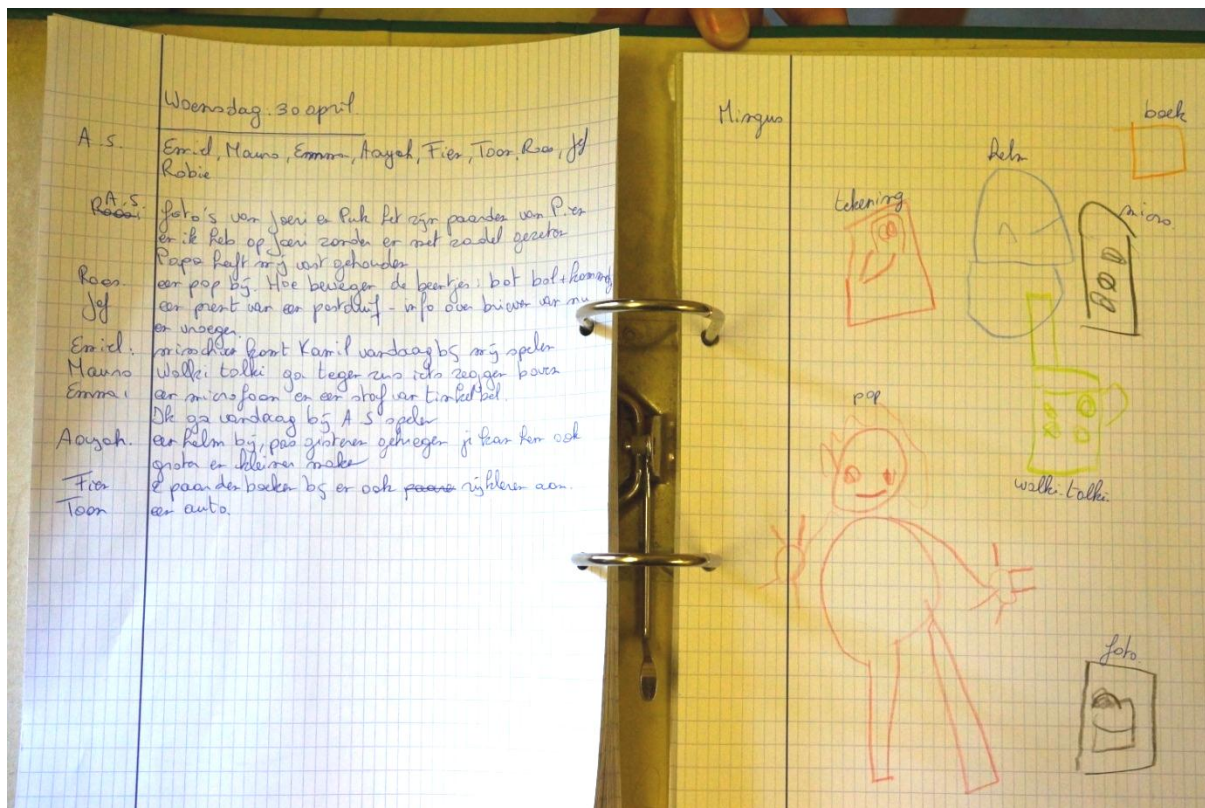 Woensdag 30 april
A.S. Emiel, Mauro, Emma, Aaycha, Fien, Toon, Roos, Jef
Robie
A.S. foto's van Joeri en Puk het zijn paarden van P. en
en ik heb op Joeri zonder en met zadel gezeten
Papa heeft mij vast gehouden
Roos een pop bij. Hoe bewegen de beertjes: bot bol +
Jef een prent van een postduif - info over brieven van nu
en vroeger.
Emiel: misschien komt Kamil vandaag bij mij spelen
Mauro walki talki ga tegen zus iets zeggen boven
Emma: een microfoon en een staf van tinkelbel.
Ik ga vandaag bij A S spelen
Aaycha. een helm bij, pas gisteren gekregen je kan hem ook
groter en kleiner maken
Fien 2 paardenboeken bij en ook rijkleren aan.
Toon een auto.
Mingus
boek
helm
tekening
micro
pop
walki-talki
foto